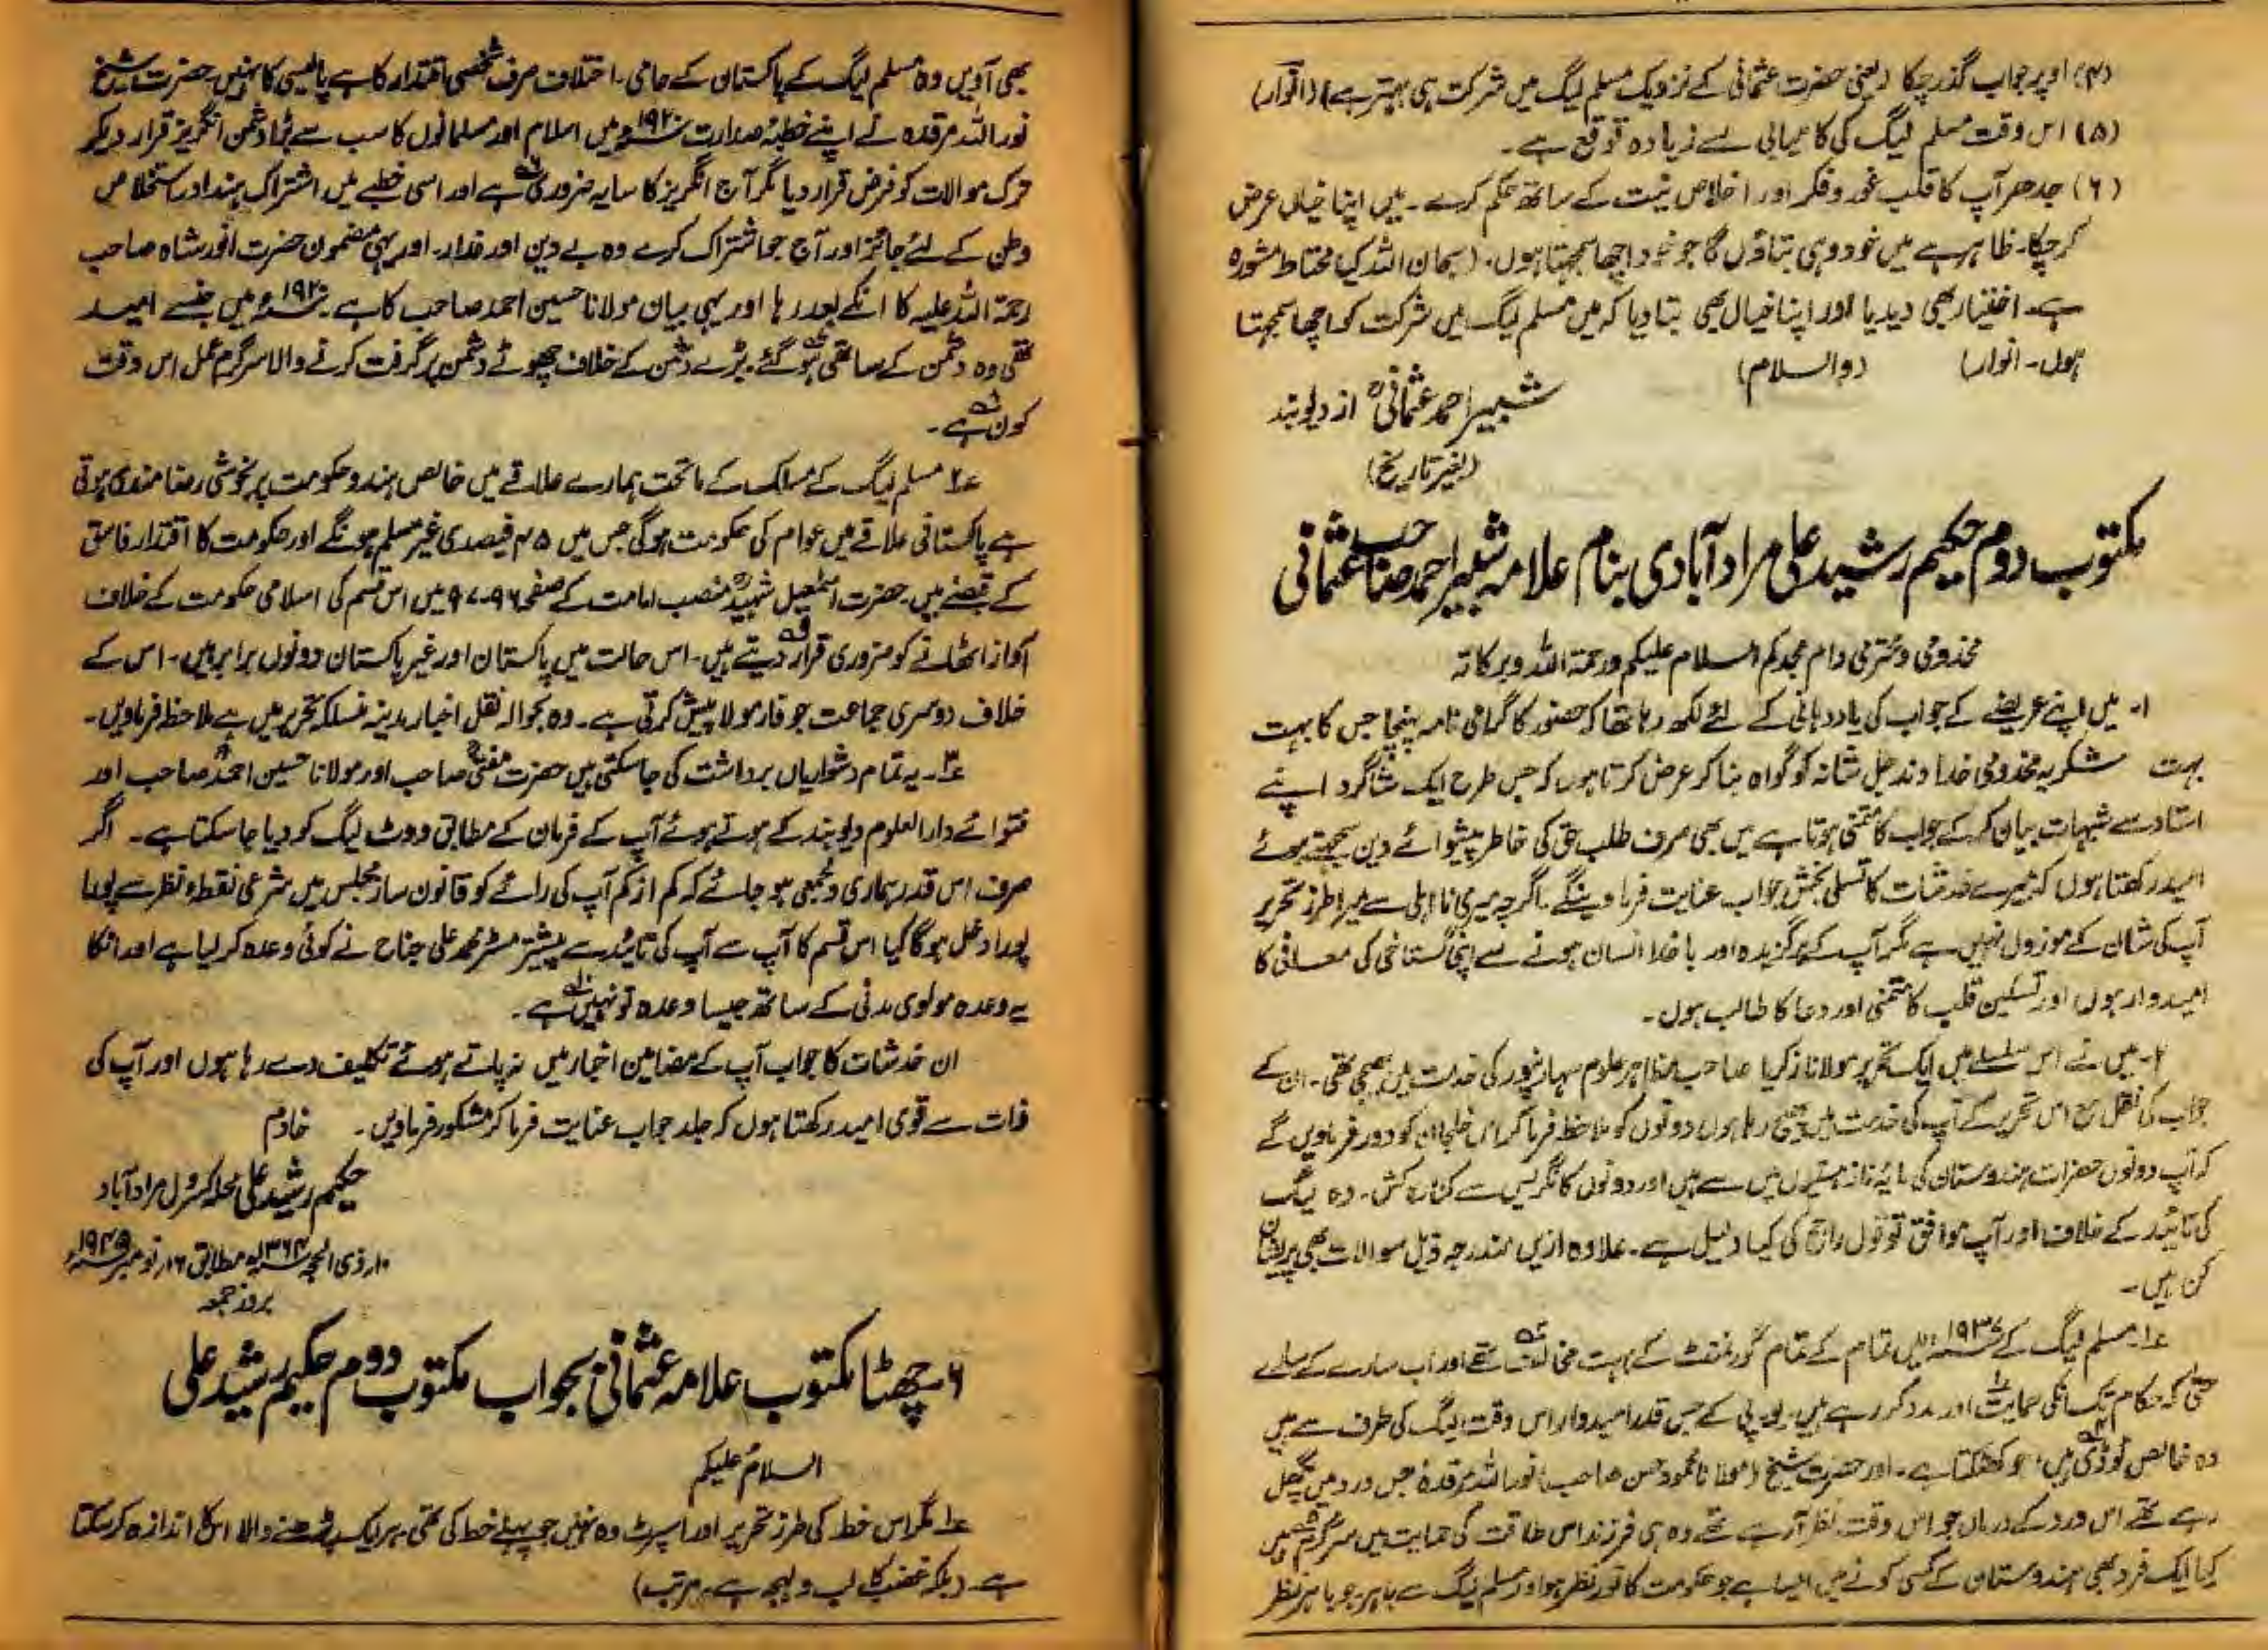 (۴) اوپر جواب گذر چکا (یعنی حضرت عثمانی کے نزدیک مسلم لیگ میں شرکت ہی بہتر ہے) (انوار)
(۵) اس وقت مسلم لیگ کی کامیابی سے زیادہ توقع ہے۔
(۶) جدھر آپ کا قلب غور و فکر اور اخلاص نیت کے ساتھ حکم کرے۔ میں اپنا خیال عرض
کر چکا۔ ظاہر ہے میں خود وہی بتاؤں گا جو خود اچھا سمجھتا ہوں۔ (سبحان اللہ کیا محتاط مشورہ
ہے۔ اختیار بھی دیدیا اور اپنا خیال بھی بتا دیا کہ میں مسلم لیگ میں شرکت کو اچھا سمجھتا
ہوں۔ انوار) (والسلام)
شبیر احمد عثمانیؒ از دیوبند
(بغیر تاریخ)
مکتوب دوم حکیم رشید علی مراد آبادی بنام علامہ شبیر احمد صاحب عثمانی
مخدومی و محترمی دام مجدکم السلام علیکم ورحمۃ اللہ وبرکاتہ
۱۔ میں اپنے عریضے کے جواب کی یاد دہانی کے لئے لکھ رہا تھا کہ حضور کا گرامی نامہ پہنچا جس کا بہت
بہت شکریہ مخدومی خداوند جل شانہ کو گواہ بنا کر عرض کرتا ہوں کہ جس طرح ایک شاگرد اپنے
استاد سے شبہات بیان کر کے جواب کا متمنی ہوتا ہے میں بھی صرف طلب حق کی خاطر پیشوائے دین سمجھتے ہوئے
امید رکھتا ہوں کہ میرے خدشات کا تسلی بخش جواب عنایت فرماوینگے۔ اگرچہ میری نا اہلی سے میرا طرز تحریر
آپ کی شان کے موزوں نہیں ہے مگر آپ کے برگزیدہ اور با خدا انسان ہونے سے اپنی گستاخی کی معافی کا
امیدوار ہوں اور تسکین قلب کا متمنی اور دعا کا طالب ہوں۔
۲۔ میں نے اس سلسلے میں ایک تحریر مولانا زکریا صاحب مظاہر علوم سہارنپور کی خدمت میں بھیجی تھی۔ ان کے
جواب کی نقل مع اس تحریر کے آپ کی خدمت میں بھیج رہا ہوں دونوں کو ملاحظہ فرما کر اس خلجان کو دور فرماویں گے
کہ آپ دونوں حضرات ہندوستان کی مایہ ناز ہستیوں میں سے ہیں اور دونوں کانگریس سے کنارہ کش۔ وہ لیگ
کی تائید کے خلاف اور آپ موافق تو قول راجح کی کیا دلیل ہے۔ علاوہ ازیں مندرجہ ذیل سوالات بھی پریشان
کن ہیں۔
۱؎ مسلم لیگ کے ۱۹۳۷ء میں تمام کے تمام گورنمنٹ کے بہت مخالف تھے اور اب سارے کے سارے
حتیٰ کہ حکام تک انکی حمایت اور مدد کر رہے ہیں۔ یو۔ پی کے جس قدر امیدوار اس وقت لیگ کی طرف سے ہیں
وہ خالص ٹوڈی ہیں، جو کھٹکتا ہے۔ اور حضرت شیخ (مولانا محمود حسن صاحب) نور اللہ مرقدہ جس درد میں گھل
رہے تھے اس درد کے درماں جو اس وقت نظر آ رہے تھے وہ ہی فرزند اس طاقت کی حمایت میں سرگرم ہیں
کیا ایک فرد بھی ہندوستان کے کسی کونے میں ایسا ہے جو حکومت کا نور نظر ہو اور مسلم لیگ سے باہر ہو جو باہر نظر
بھی آویں وہ مسلم لیگ کے پاکستان کے حامی۔ اختلاف صرف شخصی اقتدار کا ہے پالیسی کا نہیں۔ حضرت شیخ
نور اللہ مرقدہ نے اپنے خطبۂ صدارت ۱۹۲۰ء میں اسلام اور مسلمانوں کا سب سے بڑا دشمن انگریز قرار دیکر
ترک موالات کو فرض قرار دیا مگر آج انگریز کا سایہ ضروری ہے اور اسی خطبے میں اشتراک ہندو استخلاص
وطن کے لئے جائز اور آج جو اشتراک کرے وہ بے دین اور غدار۔ اور یہی مضمون حضرت انور شاہ صاحب
رحمۃ اللہ علیہ کا انکے بعد رہا اور یہی بیان مولانا حسین احمد صاحب کا ہے۔ ۱۹۲۰ء میں جنسے امید
تھی وہ دشمن کے ساتھی ہو گئے۔ بڑے دشمن کے خلاف چھوٹے دشمن پر گرفت کرنے والا سرگرم عمل اس وقت
کون ہے۔
۲؎ مسلم لیگ کے مسلک کے ماتحت ہمارے علاقے میں خالص ہندو حکومت پر بخوشی رضامندی ہوتی
ہے پاکستانی علاقے میں عوام کی حکومت ہوگی جس میں ۴۵ فیصدی غیر مسلم ہونگے اور حکومت کا اقتدار فاسق
کے قبضے میں۔ حضرت اسمٰعیل شہیدؒ منصب امامت کے صفحہ ۹۶-۹۷ میں اس قسم کی اسلامی حکومت کے خلاف
آواز اٹھانے کو ضروری قرار دیتے ہیں۔ اس حالت میں پاکستان اور غیر پاکستان دونوں برابر ہیں۔ اس کے
خلاف دوسری جماعت جو فارمولا پیش کرتی ہے۔ وہ بحوالہ نقل اخبار مدینہ منسلکہ تحریر میں ہے ملاحظہ فرماویں۔
۳؎۔ یہ تمام دشواریاں برداشت کی جا سکتی ہیں حضرت مفتی صاحب اور مولانا حسین احمد صاحب اور
فتوائے دارالعلوم دیوبند کے ہوتے ہوئے آپ کے فرمان کے مطابق ووٹ لیگ کو دیا جا سکتا ہے۔ اگر
صرف اس قدر ہماری دلجمعی ہو جائے کہ کم از کم آپ کی رائے کو قانون ساز مجلس میں شرعی نقطۂ نظر سے پورا
پورا دخل ہوگا کیا اس قسم کا آپ سے آپ کی تائید سے پیشتر مسٹر محمد علی جناح نے کوئی وعدہ کر لیا ہے اور انکا
یہ وعدہ مولوی مدنی کے ساتھ جیسا وعدہ تو نہیں ہے۔
ان خدشات کا جواب آپ کے مضامین اخبار میں نہ پاتے ہوئے تکلیف دے رہا ہوں اور آپ کی
ذات سے قوی امید رکھتا ہوں کہ جلد جواب عنایت فرما کر مشکور فرماویں۔ خادم
حکیم رشید علی محلہ کسرول مراد آباد
۱۰ر ذی الحجہ ۱۳۶۴ھ مطابق ۱۶ر نومبر ۱۹۴۵ء
بروز جمعہ
۶۔ چھٹا مکتوب علامہ عثمانیؒ بجواب مکتوب دوم حکیم رشید علی
السلام علیکم
۱؎ مگر اس خط کی طرز تحریر اور اسپرٹ وہ نہیں جو پہلے خط کی تھی۔ ہر ایک پڑھنے والا اس کا اندازہ کر سکتا
ہے۔ (بلکہ غضب کا لب و لہجہ ہے۔ مرتب)